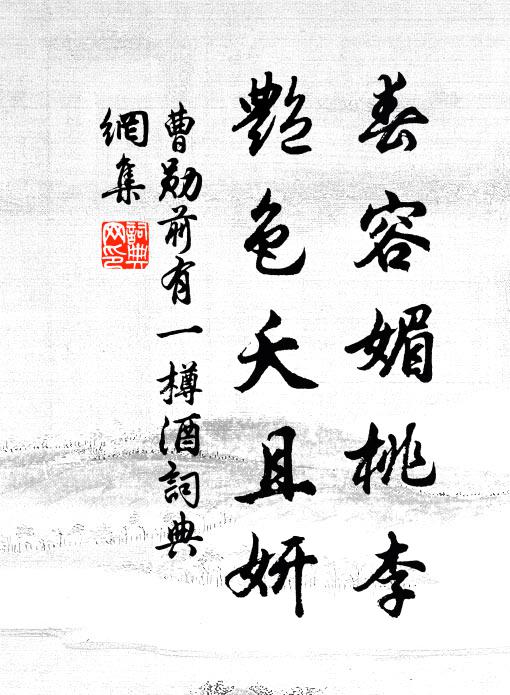 春容媚桃李
艳色夭且妍
曹勋前有一樽酒词典
网集
詞典
网印